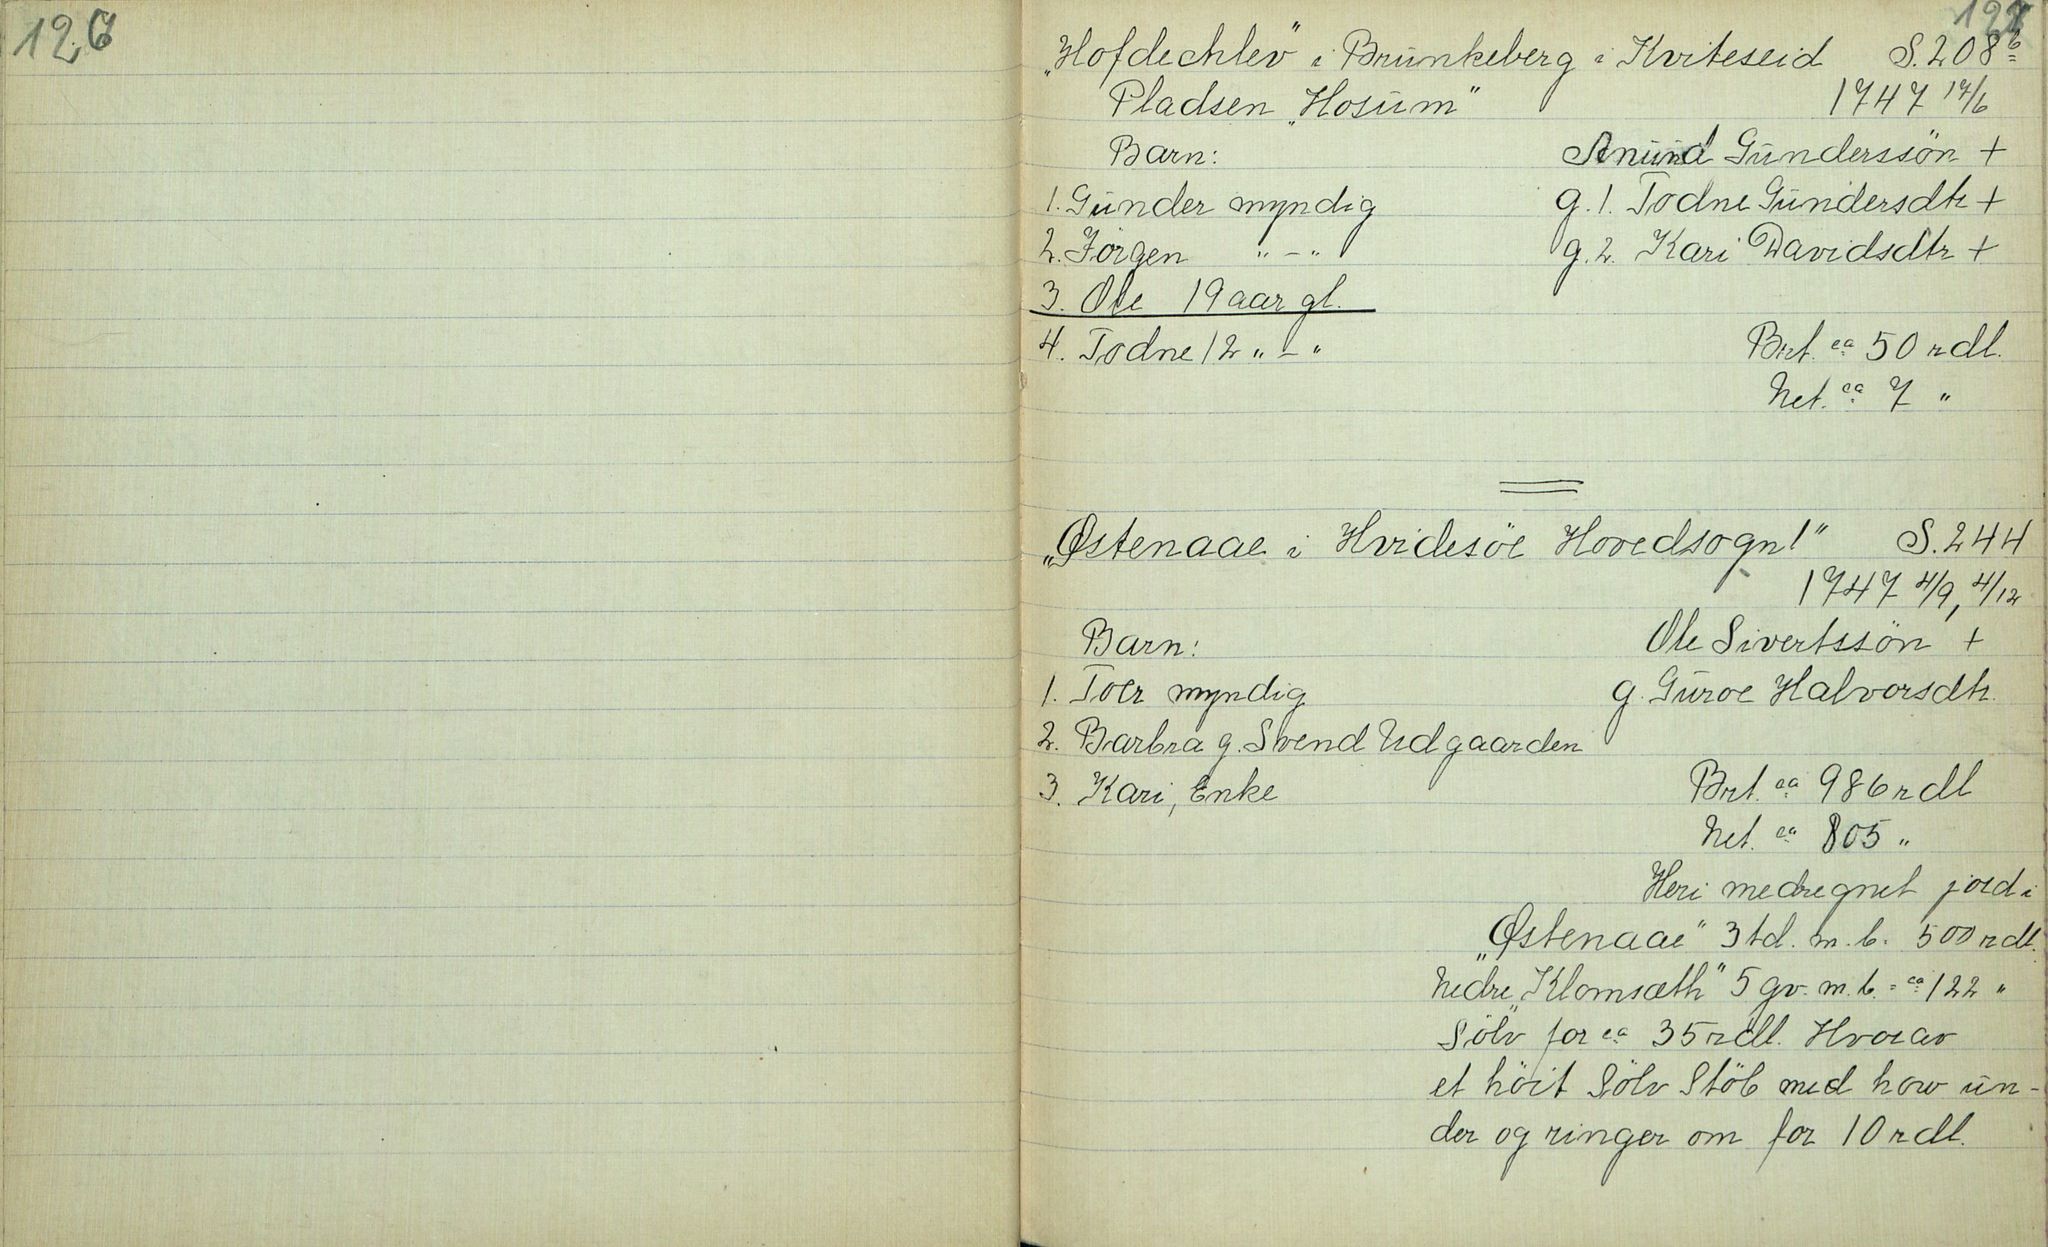 126
127
„Hofdechlev" i Brunkeberg i Kviteseid S. 208 b
Pladsen „Hosum" 1747 17/6
Barn: Anund Gunderssön +
1. Gunder myndig g. 1. Todne Gundersdtr +
2. Jörgen " – " g. 2. Kari Davidsdtr +
3. Ole 19 aar gl.
4. Todne 12 " – " Brt. ca 50 rdl.
Net. ca 7 "
„Østenaae i Hvidesöe Hovedsogn!" S. 244
1747 4/9, 4/12
Barn: Ole Sivertssön +
1. Toer myndig g. Guroe Halvorsdtr.
2. Barbra g. Svend Udgaarden
3. Kari, Enke Brt. ca 986 rdl
Net. ca 805 "
Heri medregnet jord i
„Østenaae" 3 td. m. b. 500 rdl.
Nedre „Klomsæth" 5 gv. m. b. = ca 122 "
Sölv for ca 35 rdl. Hvorav
et höit Sölv Stöb med how un-
der og ringer om for 10 rdl.